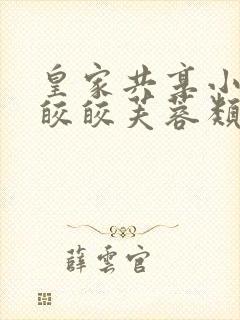 皇家共享小
皎皎芙蓉類
薛雲官